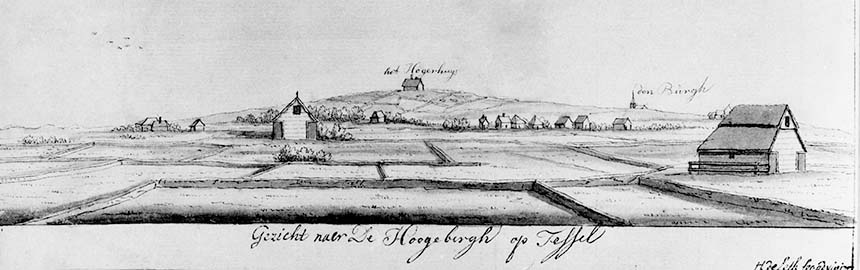 het Hogerhuys
den Burgh
Gezicht naer De Hoogebergh op Tessel
H: de Leth